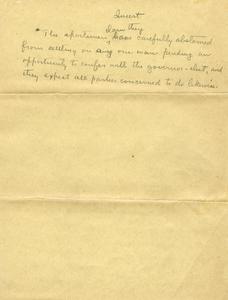 Insert
they
"The sportsmen, have carefully abstained
from settling on any one man pending an
opportunity to confer with the governor-elect, and
they expect all parties concerned to do likewise.